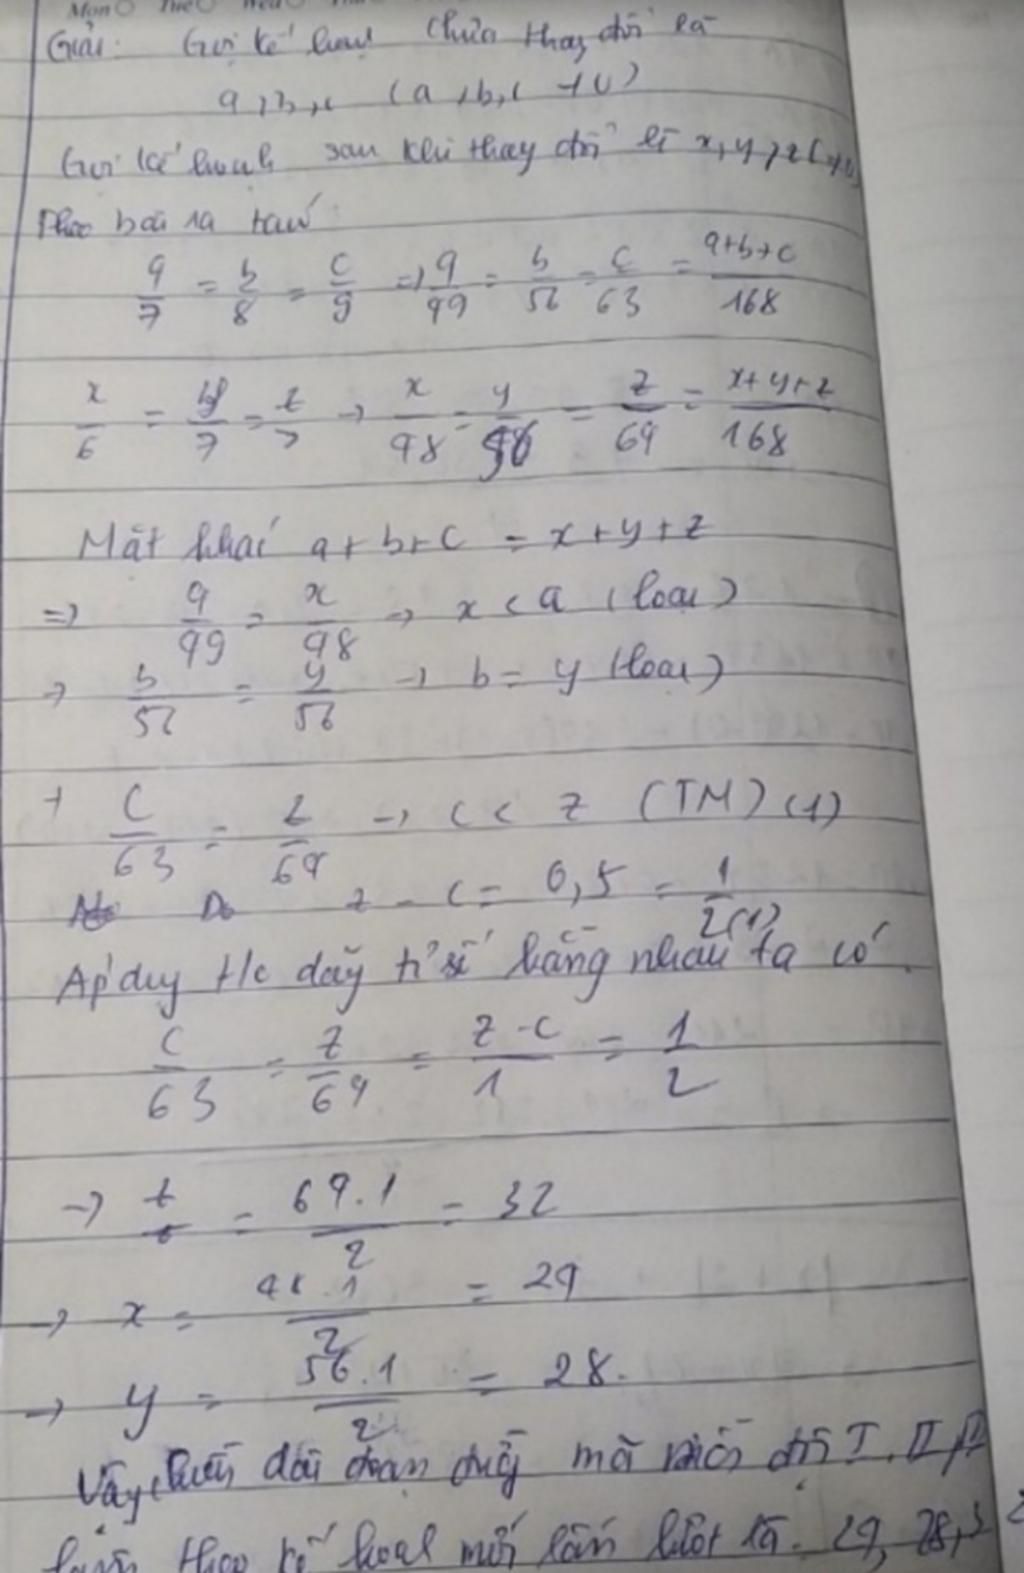 Mon Tue Wed
Giải: Gọi kế hoạch chưa thay đổi là
a, b, c (a, b, c ≠ 0)
Gọi kế hoạch sau khi thay đổi là x, y, z (≠0)
Theo bài ra ta có:
a/7 = b/8 = c/9 => a/49 = b/56 = c/63 = a+b+c/168
x/6 = y/7 = z/7 → x/48 = y/56 = z/64 = x+y+z/168
Mặt khác a+b+c = x+y+z
=> a/49 = x/48 → x < a (loại)
→ b/56 = y/56 → b = y (loại)
+ c/63 = z/64 → c < z (TM) (1)
Do z - c = 0,5 = 1/2 (1)
Áp dụng t/c dãy tỉ số bằng nhau ta có
c/63 = z/64 = z-c/1 = 1/2
→ z = 64.1/2 = 32
→ x = 48.1/2 = 24
→ y = 56.1/2 = 28.
Vậy dài đoạn đường mà mỗi đội I, II,
làm theo kế hoạch mới lần lượt là: 24, 28, 32